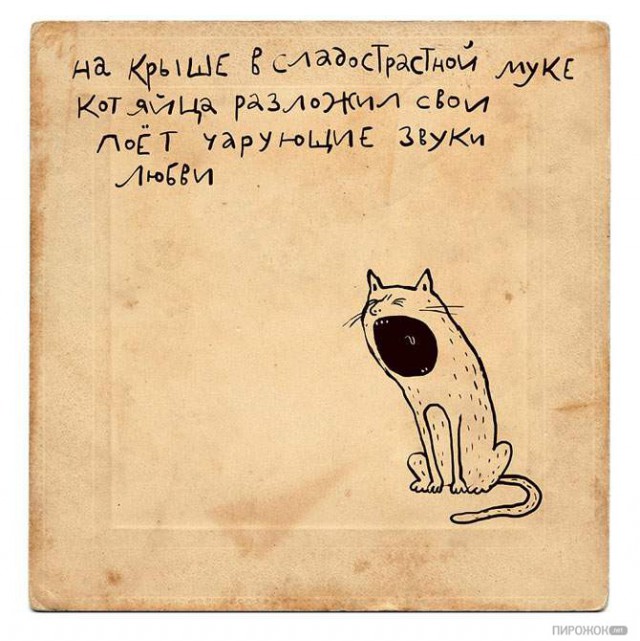 на крыше в сладострастной муке
кот яйца разложил свои
поёт чарующие звуки
любви
ПИРОЖОК.net